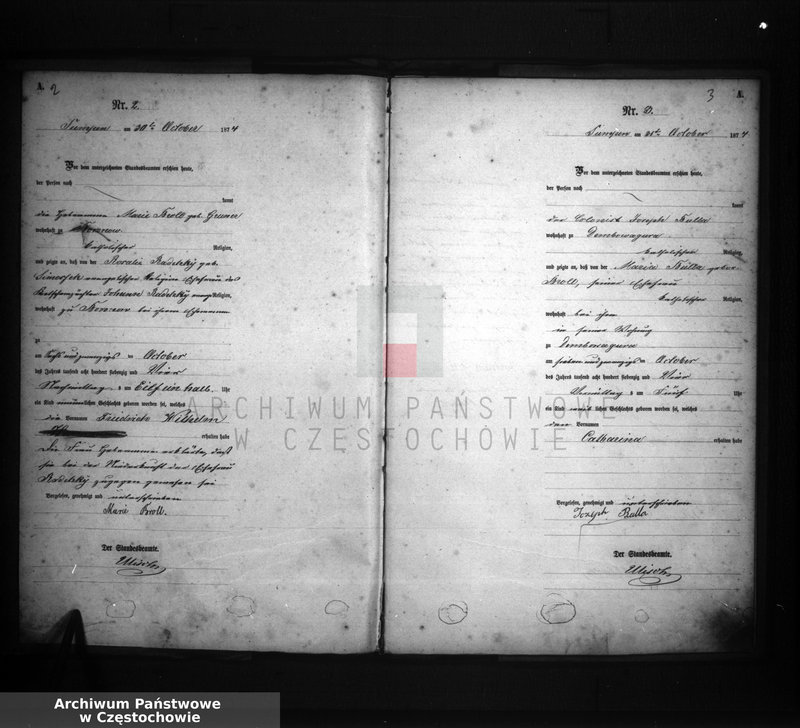 A. 2
Nr. 2
am 30te October 1874
Vor dem unterzeichneten Standesbeamten erschien heute,
der Person nach
kannt
die Hebamme Marie Kroll geb. Gruner
wohnhaft zu
katholischer Religion,
und zeigte an, daß von der Rosalie Radetzky geb.
evangelischer Religion Ehefrau des
Johann Radetzky evang. Religion,
wohnhaft zu bei ihrem Ehemann
zu
am October
des Jahres tausend acht hundert siebenzig und Vier
Nachmittag s um Eilf ein halb Uhr
ein Kind männlichen Geschlechts geboren worden sei, welches
die Vornamen Friedrich Wilhelm
erhalten habe
Die Frau Hebamme erklärte, daß
sie bei der Niederkunft der Ehefrau
Radetzky zugegen gewesen sei
Vorgelesen, genehmigt und unterschrieben
Marie Kroll.
Der Standesbeamte.
3 A.
Nr. 3.
am 31te October 1874
Vor dem unterzeichneten Standesbeamten erschien heute,
der Person nach
kannt
der Colonist Joseph Bulla
wohnhaft zu Dembowagura
katholischer Religion,
und zeigte an, daß von der Maria Bulla gebor.
Kroll, seiner Ehefrau
katholischer Religion,
wohnhaft bei ihm
in seiner Wohnung
zu Dembowagura
am October
des Jahres tausend acht hundert siebenzig und Vier
Vormittag s um Fünf Uhr
ein Kind lichen Geschlechts geboren worden sei, welches
den Vornamen
Catharina erhalten habe
Vorgelesen, genehmigt und unterschrieben
Joseph Bulla
Der Standesbeamte.
ARCHIWUM PAŃSTWOWE
W CZĘSTOCHOWIE
Archiwum Państwowe
w Częstochowie